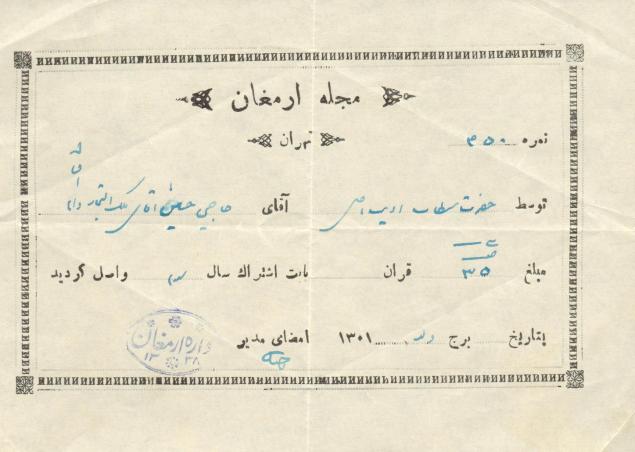 مجله ارمغان
تهران
نمره ۳۵۰
توسط حضرت مستطاب ادیب آقای حاجی حسین آقای ملک التجار دام
مبلغ ۳۵ قران بابت اشتراک سال سوم واصل گردید
بتاریخ برج دلو ۱۳۰۱ امضای مدیر
اداره ارمغان
۱۳۳۸